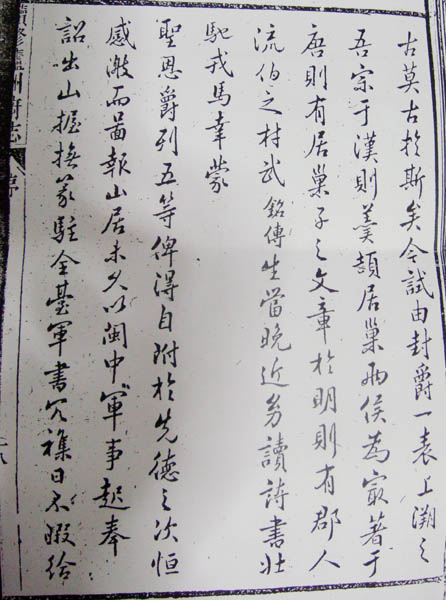 古莫古於斯矣今試由封爵一表上溯之
吾宗于漢則羹頡居巢兩侯為最著于
唐則有居巢子之文章於明則有郡人
流伯之材武銘傳生當晚近幼讀詩書壯
馳戎馬幸蒙
聖恩爵列五等俾得自附於先德之次恒
感激而啚報山居未久以閩中軍事起奉
詔出山握撫篆駐全臺軍書冗襍日不暇給
續修廬州府志
序